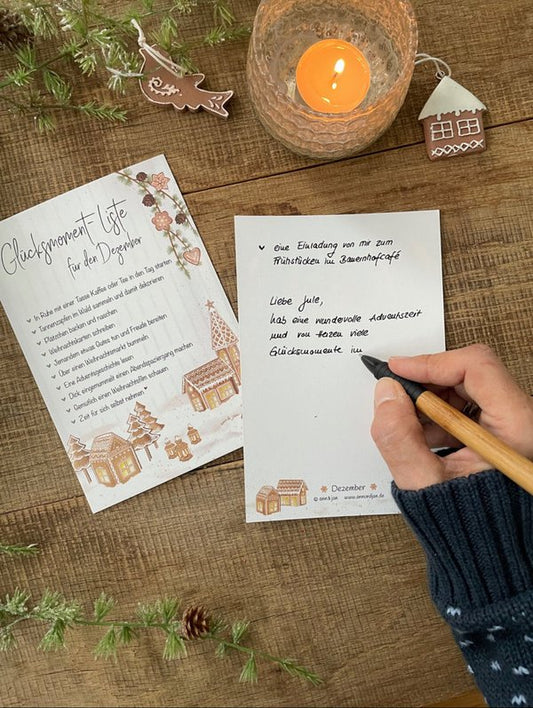 Glücksmoment Liste
für den Dezember
In Ruhe mit einer Tasse Kaffee oder Tee in den Tag starten
Tannenzapfen im Wald sammeln und damit dekorieren
Plätzchen backen und naschen
Weihnachtskarten schreiben
Jemandem etwas Gutes tun und Freude bereiten
Über einen Weihnachtsmarkt bummeln
Eine Adventsgeschichte lesen
Dick eingemummelt einen Abendspaziergang machen
Gemütlich einen Weihnachtsfilm schauen
Zeit für sich selbst nehmen
eine Einladung von mir zum
Frühstücken im Bauernhofcafé
Liebe Jule,
hab eine wundervolle Adventszeit
und von Herzen viele
Glücksmomente im
Dezember
© ann&jan www.annundjan.de